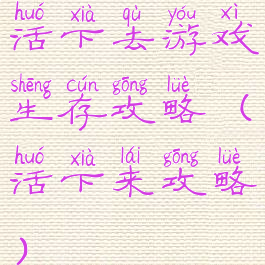 huó xià qù yóu xì
活下去游戏
shēng cún gōng lüè
生存攻略（
huó xià lái gōng lüè
活下来攻略
）